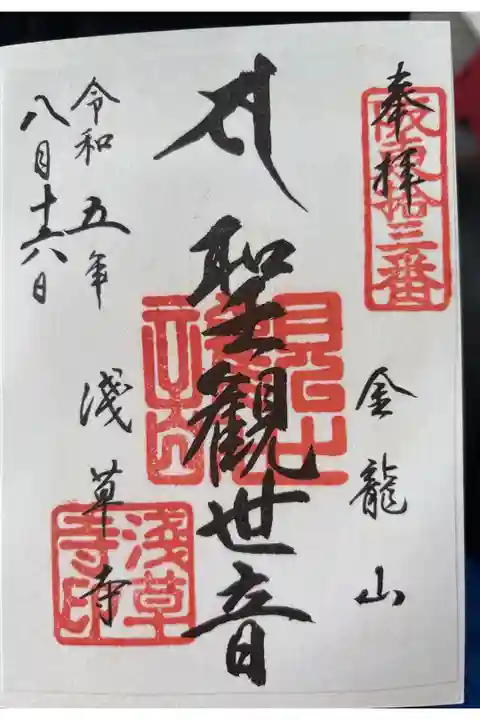 奉拝
坂東拾三番
金龍山
聖観世音
淺草寺
淺草寺印
令和五年
八月十六日